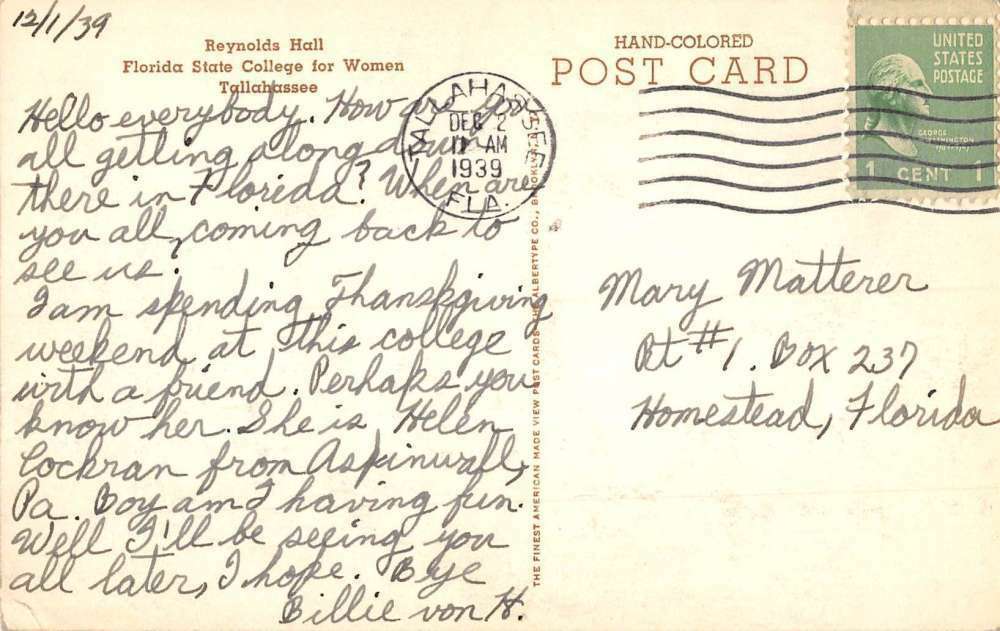 12/1/39
Reynolds Hall
Florida State College for Women
Tallahassee
Hello everybody. How are you
all getting along down
there in Florida? When are
you all, coming back to
see us?
I am spending Thanskgiving
weekend at this college
with a friend. Perhaps you
know her. She is Helen
Cockran from Aspinwall,
Pa. Boy am I having fun.
Well I'll be seeing you
all later, I hope. Bye
Billie von H.
TALLAHASSEE
DEC 2
11 AM
1939
FLA.
THE FINEST AMERICAN MADE VIEW POST CARDS THE ALBERTYPE CO., BROOKLYN, N.Y.
HAND-COLORED
POST CARD
UNITED
STATES
POSTAGE
GEORGE
WASHINGTON
1 CENT 1
Mary Matterer
Rt #1. Box 237
Homestead, Florida